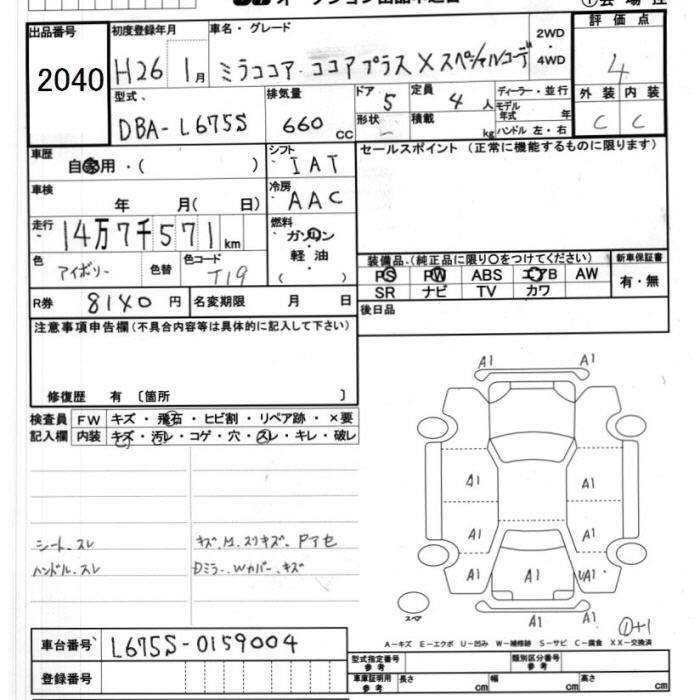 オークション出品申込書
①会場控
出品番号 初度登録年月 車名・グレード 2WD・4WD 評価点
2040 H26 1月 ミラココア・ココアプラスXスペシャルコーデ 4
型式 排気量 ドア 定員 ディーラー・並行 外装 内装
DBA-L675S 660 cc 5 4人 モデル年式 年 C C
形状 積載 kg ハンドル 左・右
車歴 シフト セールスポイント (正常に機能するものに限ります)
自家用・( ) IAT
車検 冷房
年 月( 日) AAC
走行 燃料
14万7千571km ガソリン・軽油 ( )
色 色替 色コード 装備品・(純正品に限り○をつけてください) 新車保証書
アイボリー T19 PS PW ABS エアB AW 有・無
SR ナビ TV カワ
R券 8140円 名変期限 月 日 後日品
注意事項申告欄(不具合内容等は具体的に記入して下さい)
修復歴 有 〔箇所 〕
検査員 FW キズ・飛石・ヒビ割・リペア跡・×要
記入欄 内装 キズ・汚レ・コゲ・穴・スレ・キレ・破レ
シート.スレ キズ.M.スリキズ.Pアセ
ハンドル.スレ Dミラー.Wカバー.キズ
A1 A1
A1 A1
A1
A1 A1 UA1
A1 A1
スペア
①+1
A-キズ E-エクボ U-凹み W-補修跡 S-サビ C-腐食 XX-交換済
車台番号 L675S-0159004
型式指定番号 参考 類別区分番号 参考
登録番号 車庫証明用 参考 長さ cm 幅 cm 高さ cm